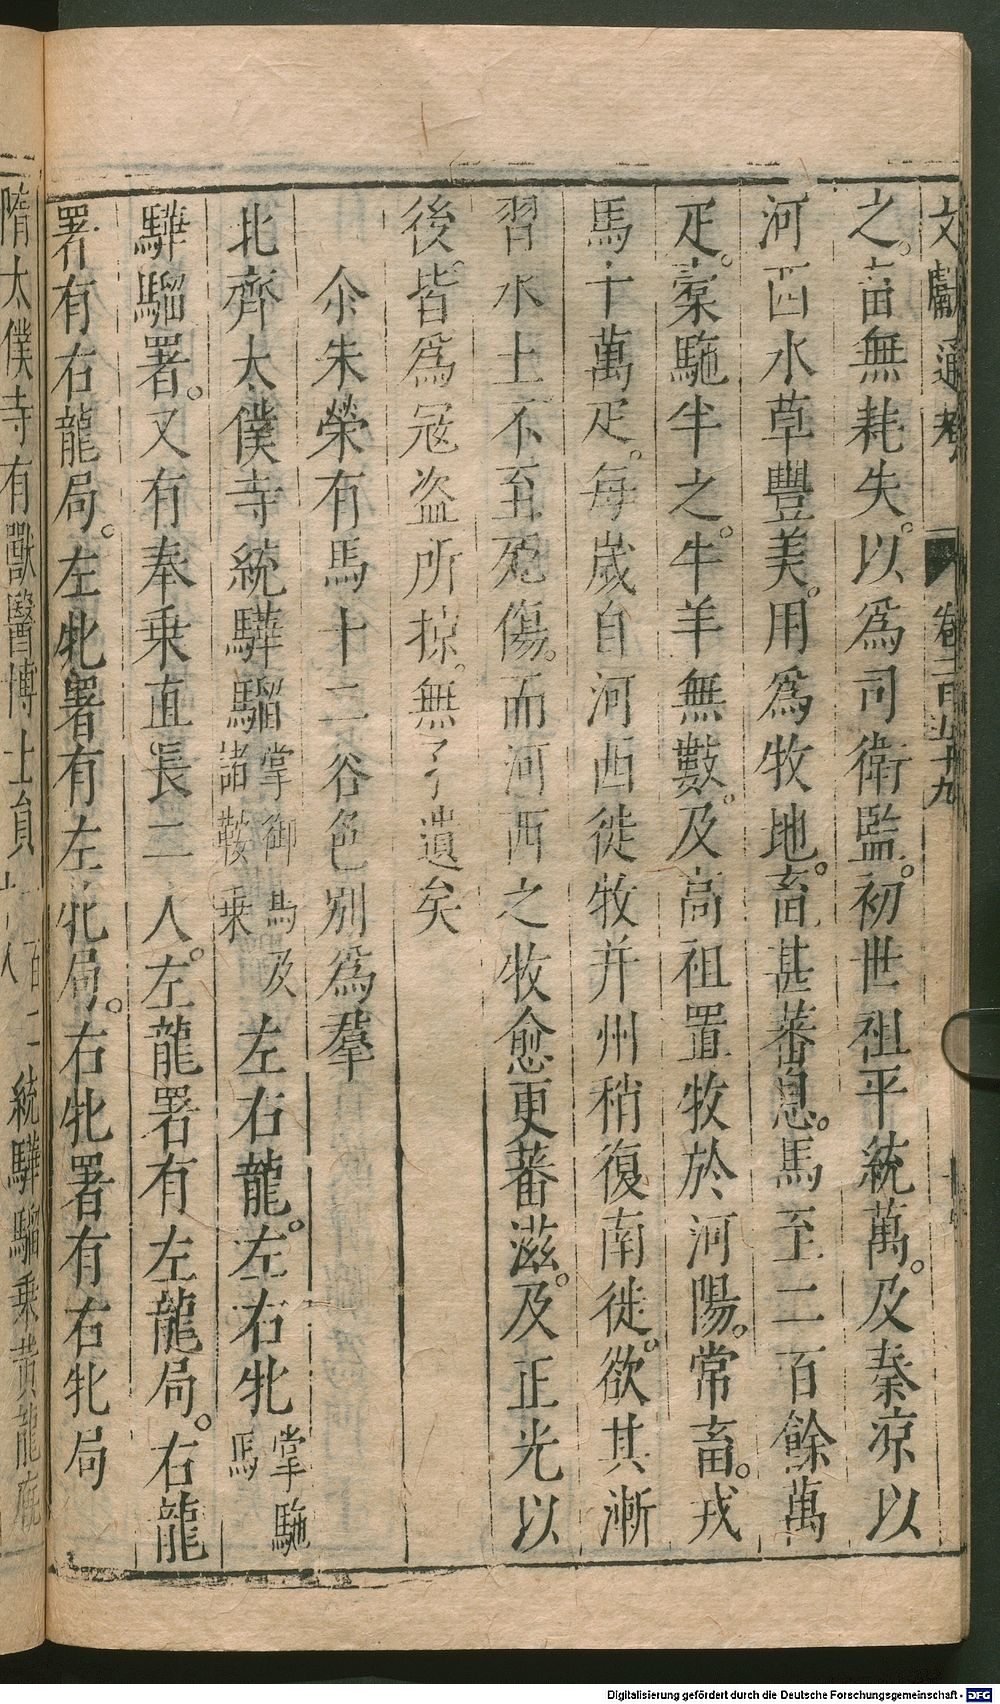 文獻通考 卷一百五十九
之。畜無耗失。以爲司衛監。初世祖平統萬。及秦涼以
河西水草豐美。用爲牧地。畜甚蕃息。馬至二百餘萬
疋。橐駞半之。牛羊無數。及高祖置牧於河陽。常畜。戎
馬十萬疋。每歲自河西徙牧并州稍復南徙。欲其漸
習水土不至死傷。而河西之牧愈更蕃滋。及正光以
後。皆爲寇盜所掠。無孑遺矣
尒朱榮有馬十二谷色別爲羣
北齊太僕寺統驊騮掌御馬及諸鞍乘左右龍。左右牝掌駞馬
驊騮署。又有奉乘直長二人。左龍署有左龍局。右龍
署有右龍局。左牝署有左牝局。右牝署有右牝局
隋太僕寺有獸醫博士員一百二十人統驊騮乘黃龍廐
Digitalisierung gefördert durch die Deutsche Forschungsgemeinschaft - DFG